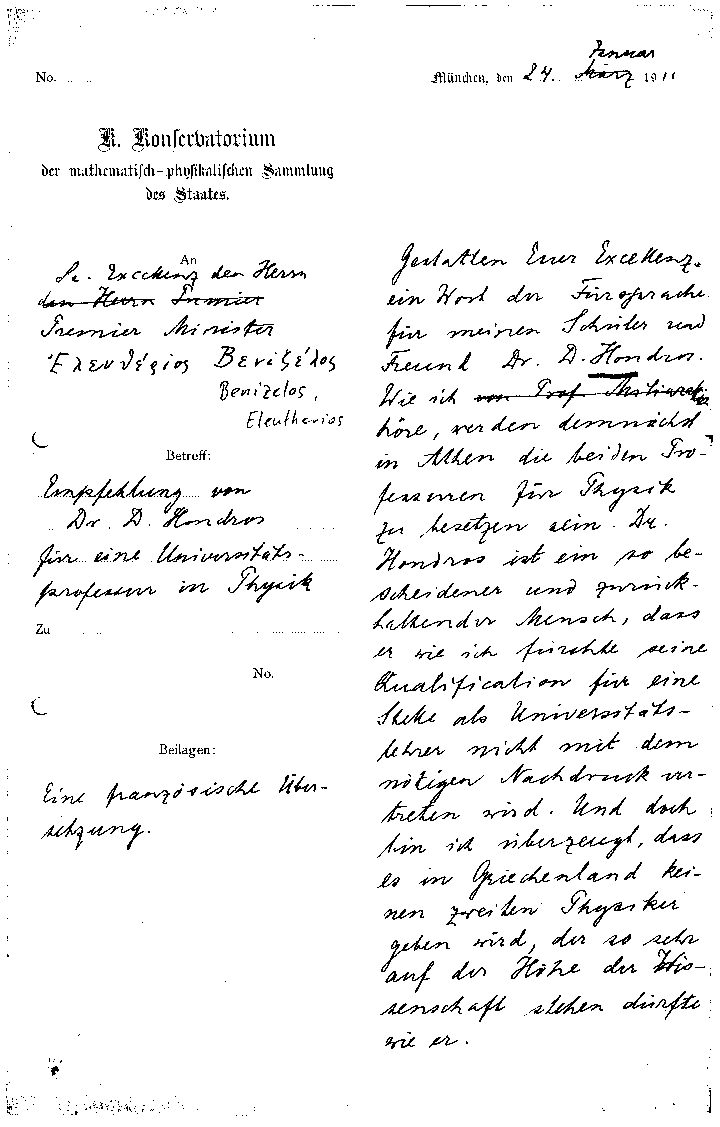 No.
Januar
München, den 24. März 1911
K. Konservatorium
der mathematisch-physikalischen Sammlung
des Staates.
An
Se. Excellenz den Herrn
den Herrn Premier
Premier Minister
Ἐλευθέριος Βενιζέλος
Benizelos,
Eleutherios
Betreff:
Empfehlung von
Dr. D. Hondros
für eine Universitäts-
professur in Physik
Zu
No.
Beilagen:
Eine französische Über-
setzung.
Gestatten Euer Excellenz,
ein Wort der Fürsprache
für meinen Schüler und
Freund Dr. D. Hondros.
Wie ich von Prof.
höre, werden demnächst
in Athen die beiden Pro-
fessuren für Physik
zu besetzen sein. Dr.
Hondros ist ein so be-
scheidener und zurück-
haltender Mensch, dass
er wie ich fürchte seine
Qualification für eine
Stelle als Universitäts-
lehrer nicht mit dem
nötigen Nachdruck ver-
treten wird. Und doch
bin ich überzeugt, dass
es in Griechenland kei-
nen zweiten Physiker
geben wird, der so sehr
auf der Höhe der Wis-
senschaft stehen dürfte
wie er.